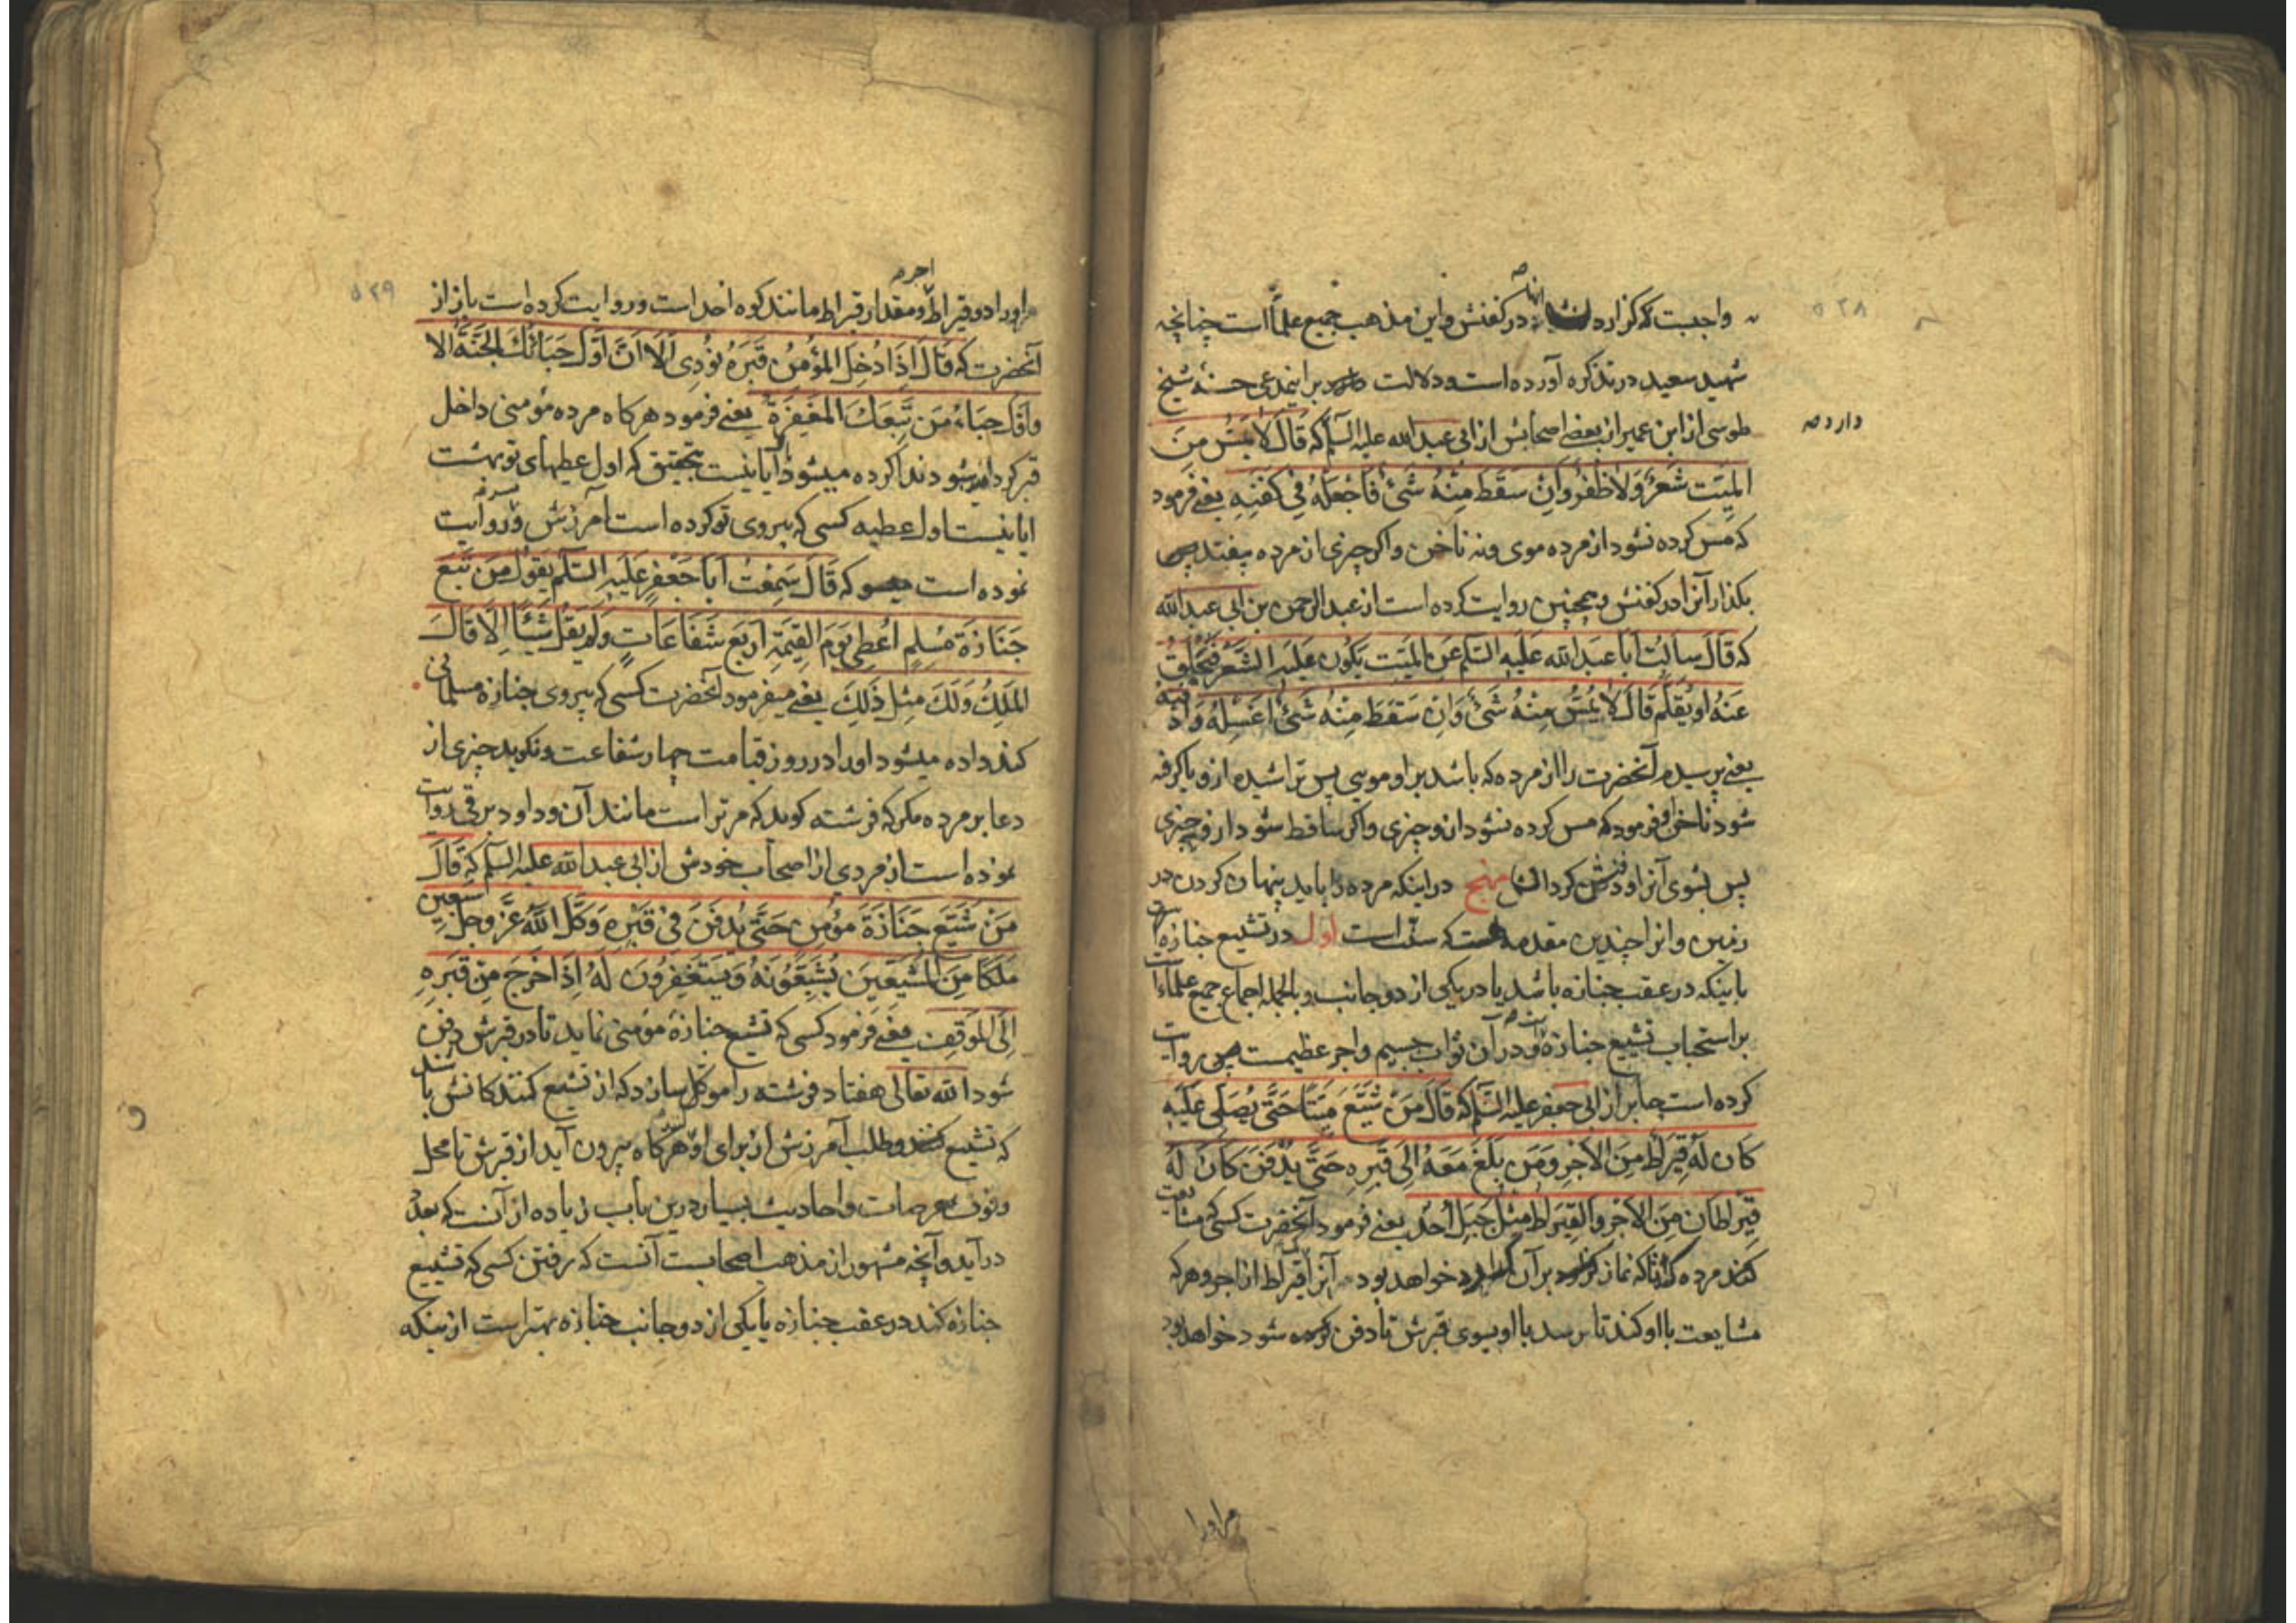 ۵۲۸
واجبست که گزارد آنها در کفنش و این مذهب جمیع علماً است چنانچه
شهید سعید در تذکره آورده است و دلالت برایندعی حسنهٔ شیخ
دارد صه
طوسی از ابن عمیر از بعضی اصحابش از ابی عبدالله علیه السلم که قَالَ لَا یُمَسُّ مِنَ
المَیِّتِ شَعْرٌ وَلَا ظُفْرٌ وَاِنْ سَقَطَ مِنْهُ شَئٌ فَاجْعَلْهُ فِی کَفَنِهِ یعنے فرمود
که مس کرده نشود از مرده موی و نه ناخن و اکر چیزی از مرده بیفتد پس
بکذار آنرا در کفنش و همچنین روایت کرده است از عبد الرحمن بن ابی عبد الله
که قَالَ سَالتُ اَبَا عَبدِ الله عَلَیهِ السَّلم عَنِ المَیِّتِ یَکُونُ عَلَیهِ الشَّعْرُ فَیُحْلَقُ
عَنْهُ اَو یُقَلَّم قَالَ لَا یُمَسُّ مِنْهُ شَئٌ وَاِنْ سَقَطَ مِنْهُ شَئٌ اغسِلهُ وَادْفنه
یعنے پرسیدم آنحضرت را از مرده که باشد بر او مویی پس تراشیده از و یا کرفته
شود ناخن او فرمود که مس کرده نشود از و چیزی و اکر ساقط شود از و چیزی
پس بشوی آنرا و دفنش کردان منهج در اینکه مرده را باید پنهان کردن در
زمین و انرا چندین مقدمه است که سنّت است اول در تشییع جنازه است
باینکه در عقب جنازه باشد یا در یکی از دو جانب و بالجمله اجماع جمیع علماء است
بر استحباب تشییع جنازه و در آن ثواب جسیم و اجر عظیمست روایت
کرده است جابر از ابی جعفر علیه السّلم که قَالَ مَنْ شَیَّعَ مَیِّتًا حَتَّی یُصَلّی عَلَیهِ
کَانَ لَهُ قِیرَاطٌ مِنَ الاَجْرِ وَمَن بَلَغَ مَعَهُ اِلَی قَبرِهِ حَتَّی یُدْفَنَ کَانَ لَهُ
قِیرَاطَانِ مِنَ الاَجْرِ وَالقِیرَاطُ مِثلُ جَبَلِ اُحُدٍ یعنے فرمود آنحضرت کسی که مشایعت
کند مرده را تا که نماز بر آن خواهد بود آنرا قیراط از اجر و هر که
مشایعت با او کند تا برسد با او بسوی قبرش تا دفن کرده شود خواهد بود
مر او را
۵۲۹
مر او را دو قیراط اجر و مقدار قیراط مانند کوه احد است و روایت کرده است باز از
آنحضرت که قَالَ اِذَا اُدْخِلَ المُؤْمِنُ قَبْرَهُ نُودِیَ اَلَا اَنَّ اَوَّلَ حَبَائِكَ الجَنَّةُ اَلَا
وَاَوَّلَ حَبَاءِ مَن تَبِعَكَ المَغْفِرَةُ یعنے فرمود هرکاه مرده مؤمنی داخل
قبر کرده شود ندا کرده میشود آیا نیست بتحقیق که اول عطیهای تو بهشت
ایا نیست اول عطیه کسی که پیروی تو کرده است آمرزش و روایت
نموده است که قَالَ سَمِعْتُ اَبَا جَعْفَرٍ عَلَیهِ السّلم یَقُولُ مَن تَبِعَ
جَنَازَةَ مُسْلِمٍ اُعْطِیَ یَومَ القِیٰمَةِ اَربَعَ شَفَاعَاتٍ وَلَم یَقُلْ شَیئًا اِلَّا قَالَ
المَلَكُ وَلَكَ مِثلُ ذَلِكَ یعنے میفرمود آنحضرت کسی که پیروی جنازهٔ مسلمانی
کند داده میشود او را در روز قیامت چهار شفاعت و نکوید چیزی از
دعا بر مرده مکر که فرشته کوید که مر تراست مانند آن و داود برقی روایت
نموده است از مردی از اصحاب خودش از ابی عبد الله علیه السلم که قَالَ
مَنْ شَیَّعَ جَنَازَةَ مُؤْمِنٍ حَتَّی یُدْفَنَ فِی قَبْرِهِ وَکَّلَ اللّٰهُ عَزَّ وَجَلَّ سَبعِینَ
مَلَکًا مِنَ المُشَیِّعِینَ یُشَیِّعُونَهُ وَیَسْتَغْفِرُونَ لَهُ اِذَا خَرَجَ مِنْ قَبْرِهِ
اِلَی المَوقِفِ یعنے فرمود کسی که تشییع جنازهٔ مؤمنی نماید تا در قبرش دفن
شود الله تعالی هفتاد فرشته را موکل سازد که از تشییع کنندکانش باشند
که تشییع کنند و طلب آمرزش از برای او هرکاه بیرون آید از قبرش تا محل
وقوف عرصات و احادیث بسیار درین باب زیاده از آنست که بعدّ
در آید و آنچه مشهور از مذهب اصحابست آنست که رفتن کسی که تشییع
جنازه کند در عقب جنازه یا یکی از دو جانب جنازه بهتر است از اینکه